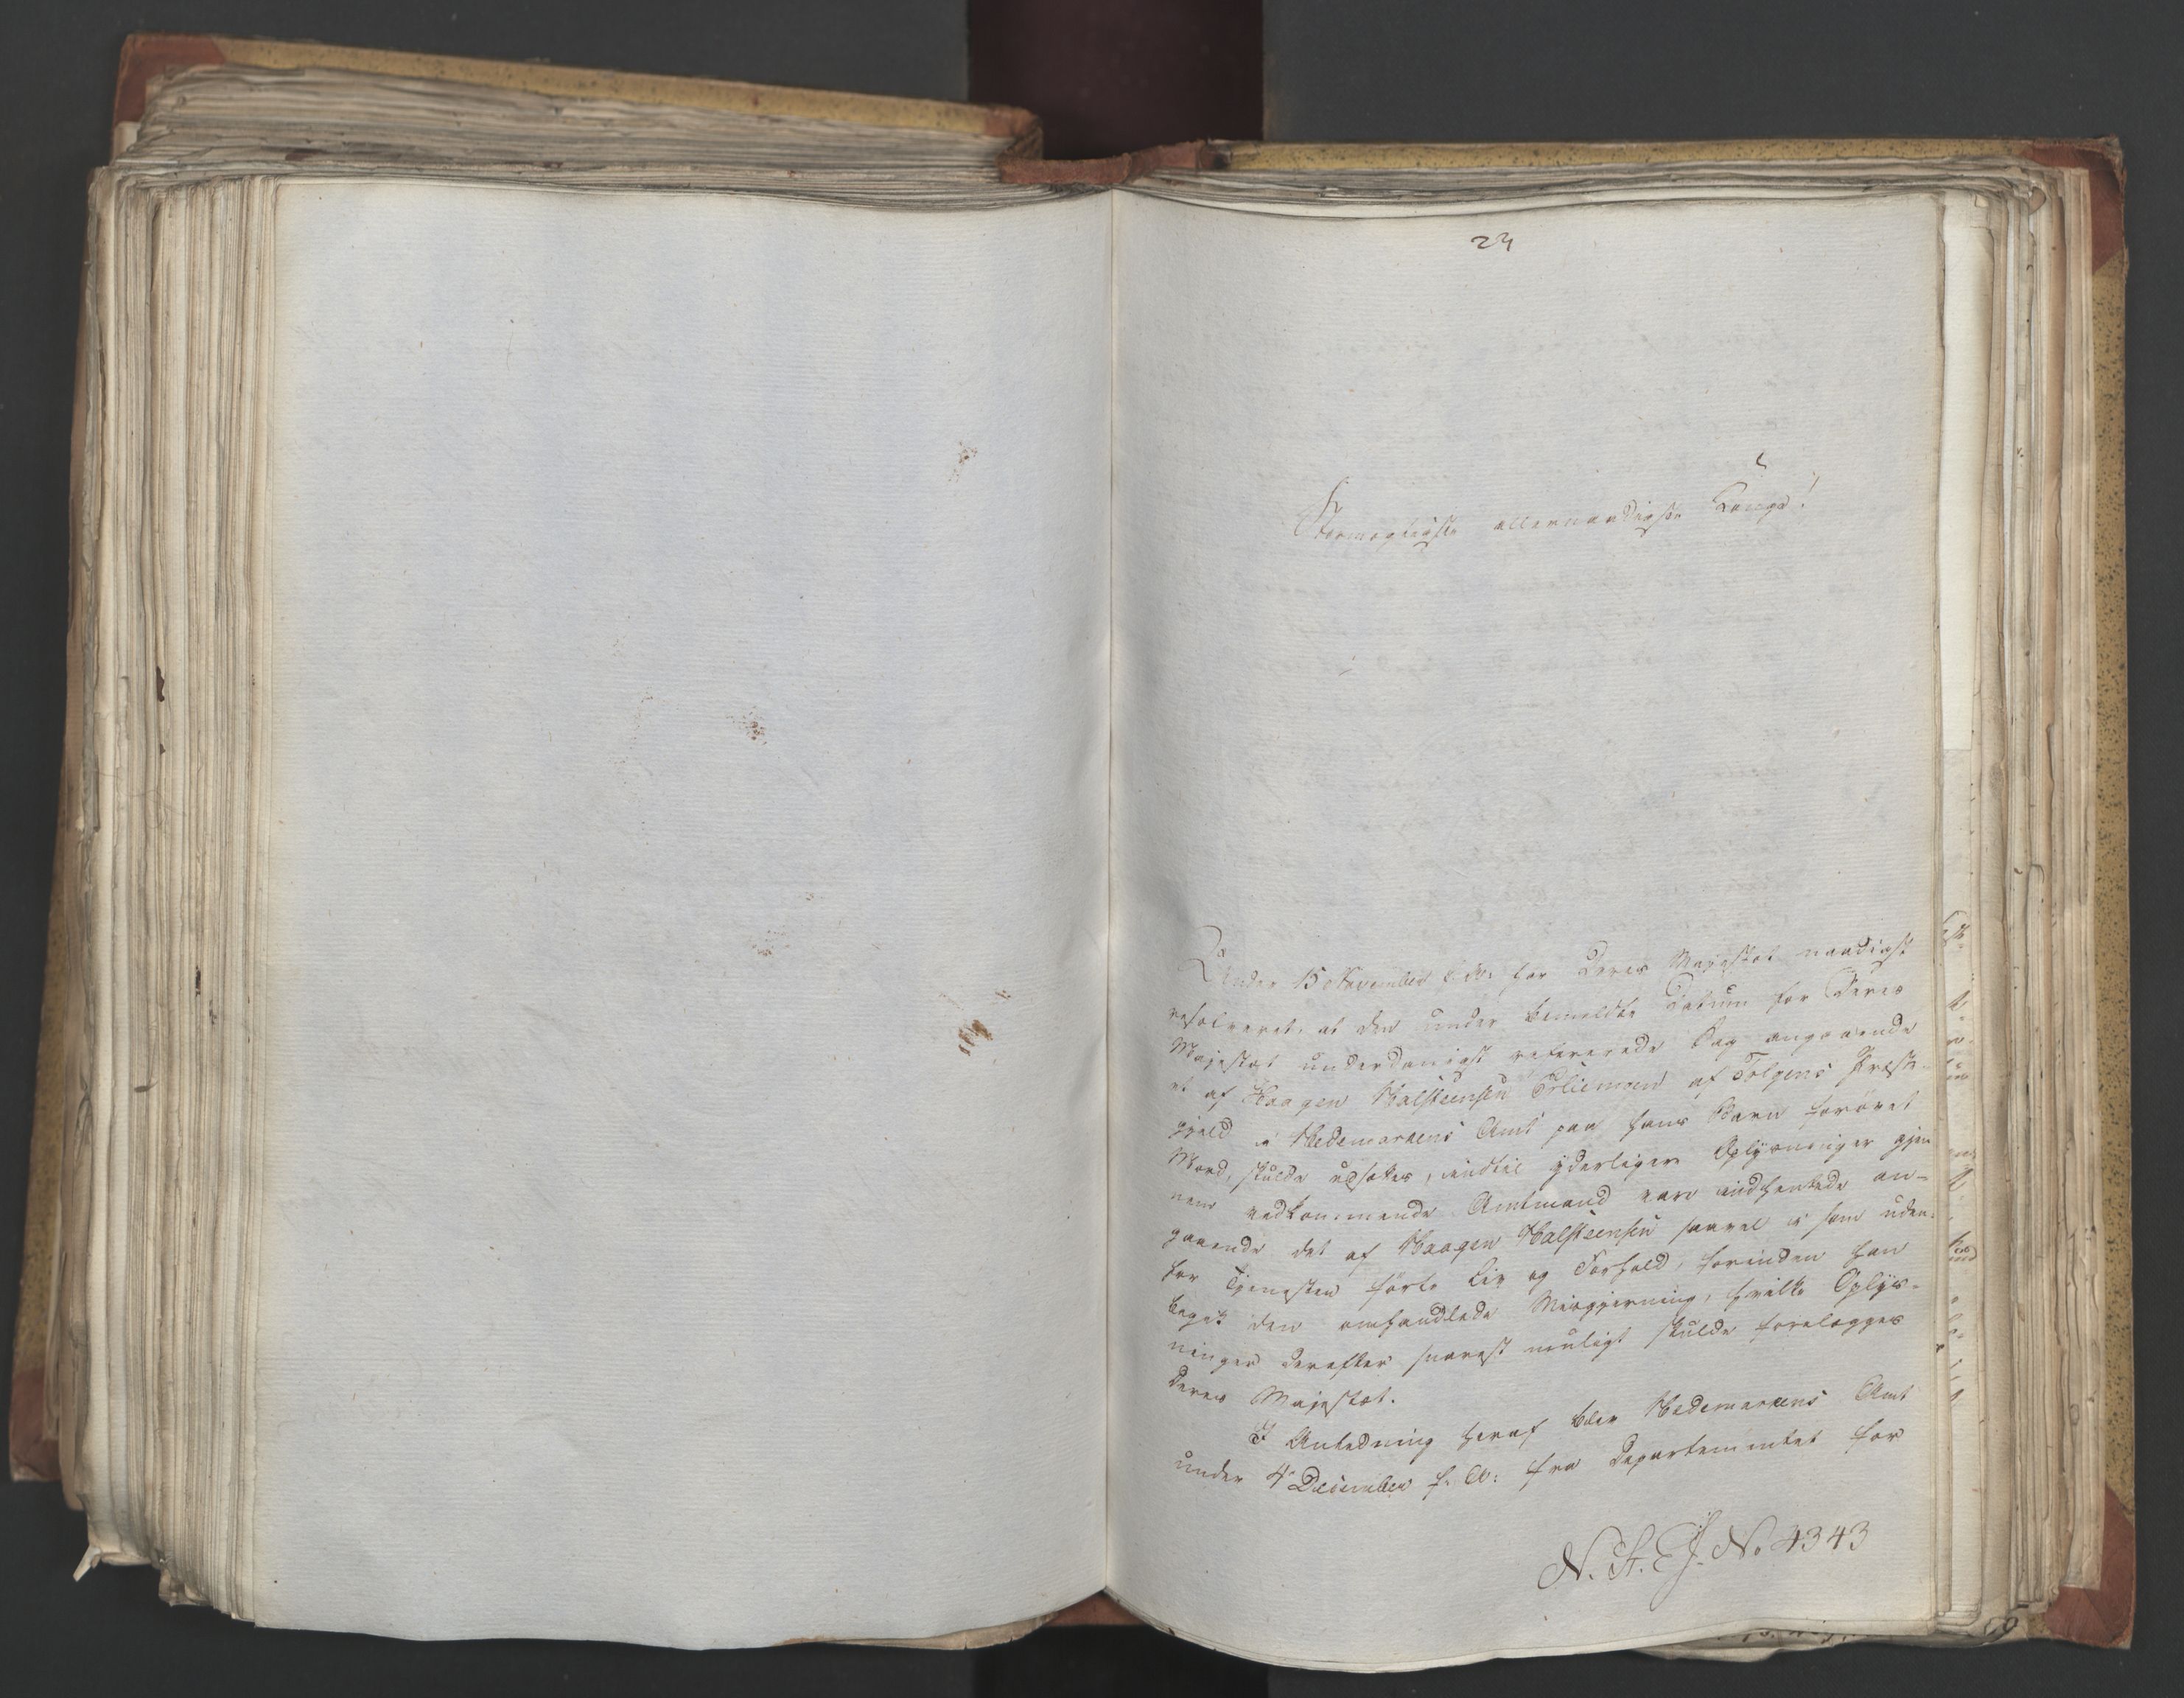 24
Stormægtigste allernaadigste Konge!
Under 15 November f. A: har Deres Majestæt naadigst
resolveret, at den under bemeldte Datum for Deres
Majestæt underdanigst refererede Sag angaaende
et af Haagen Halsteensen Erliemoen af Tolgens Præste-
gjeld i Hedemarkens Amt paa hans Barn forøvet
Mord, skulde udsættes, indtil yderligere Oplysninger gjen-
nem vedkommende Amtmand vare indhentede an-
gaaende det af Haagen Halsteensen saavel i som uden-
for Tjenesten førte Liv og Forhold, forinden han
begik den omhandlede Misgjerning, hvilke Oplys-
ninger derefter snarest muligt skulde forelægges
Deres Majestæt.
I Anledning heraf blev Hedemarkens Amt
under 4 December f. A: fra Departementet for
N. St. E. J. No 4343